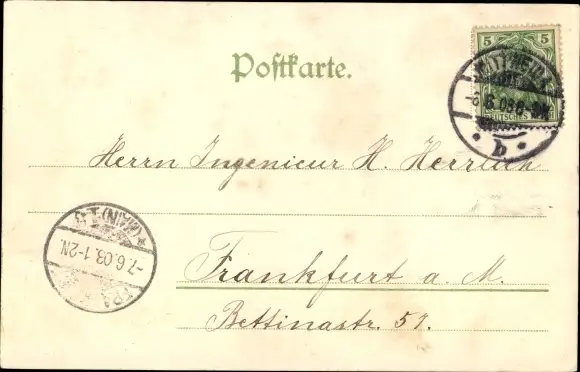 Postkarte.
5 5
DEUTSCHES
-6.6.03.
b
Herrn Ingenieur H. Herrlich
(MAIN)
-7.6.03.1-2N.
Frankfurt a. M.
Bettinastr. 57.